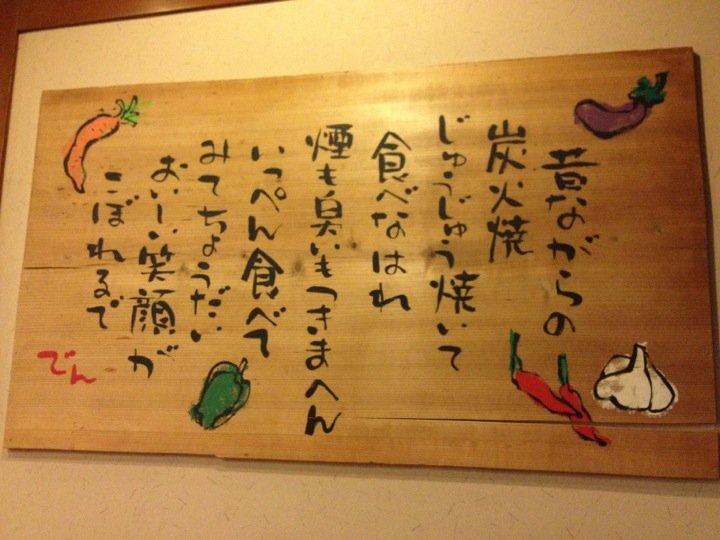 昔ながらの
炭火焼
じゅうじゅう焼いて
食べなはれ
煙も臭いもつきまへん
いっぺん食べて
みてちょうだい
おいしい笑顔が
こぼれるで
でん